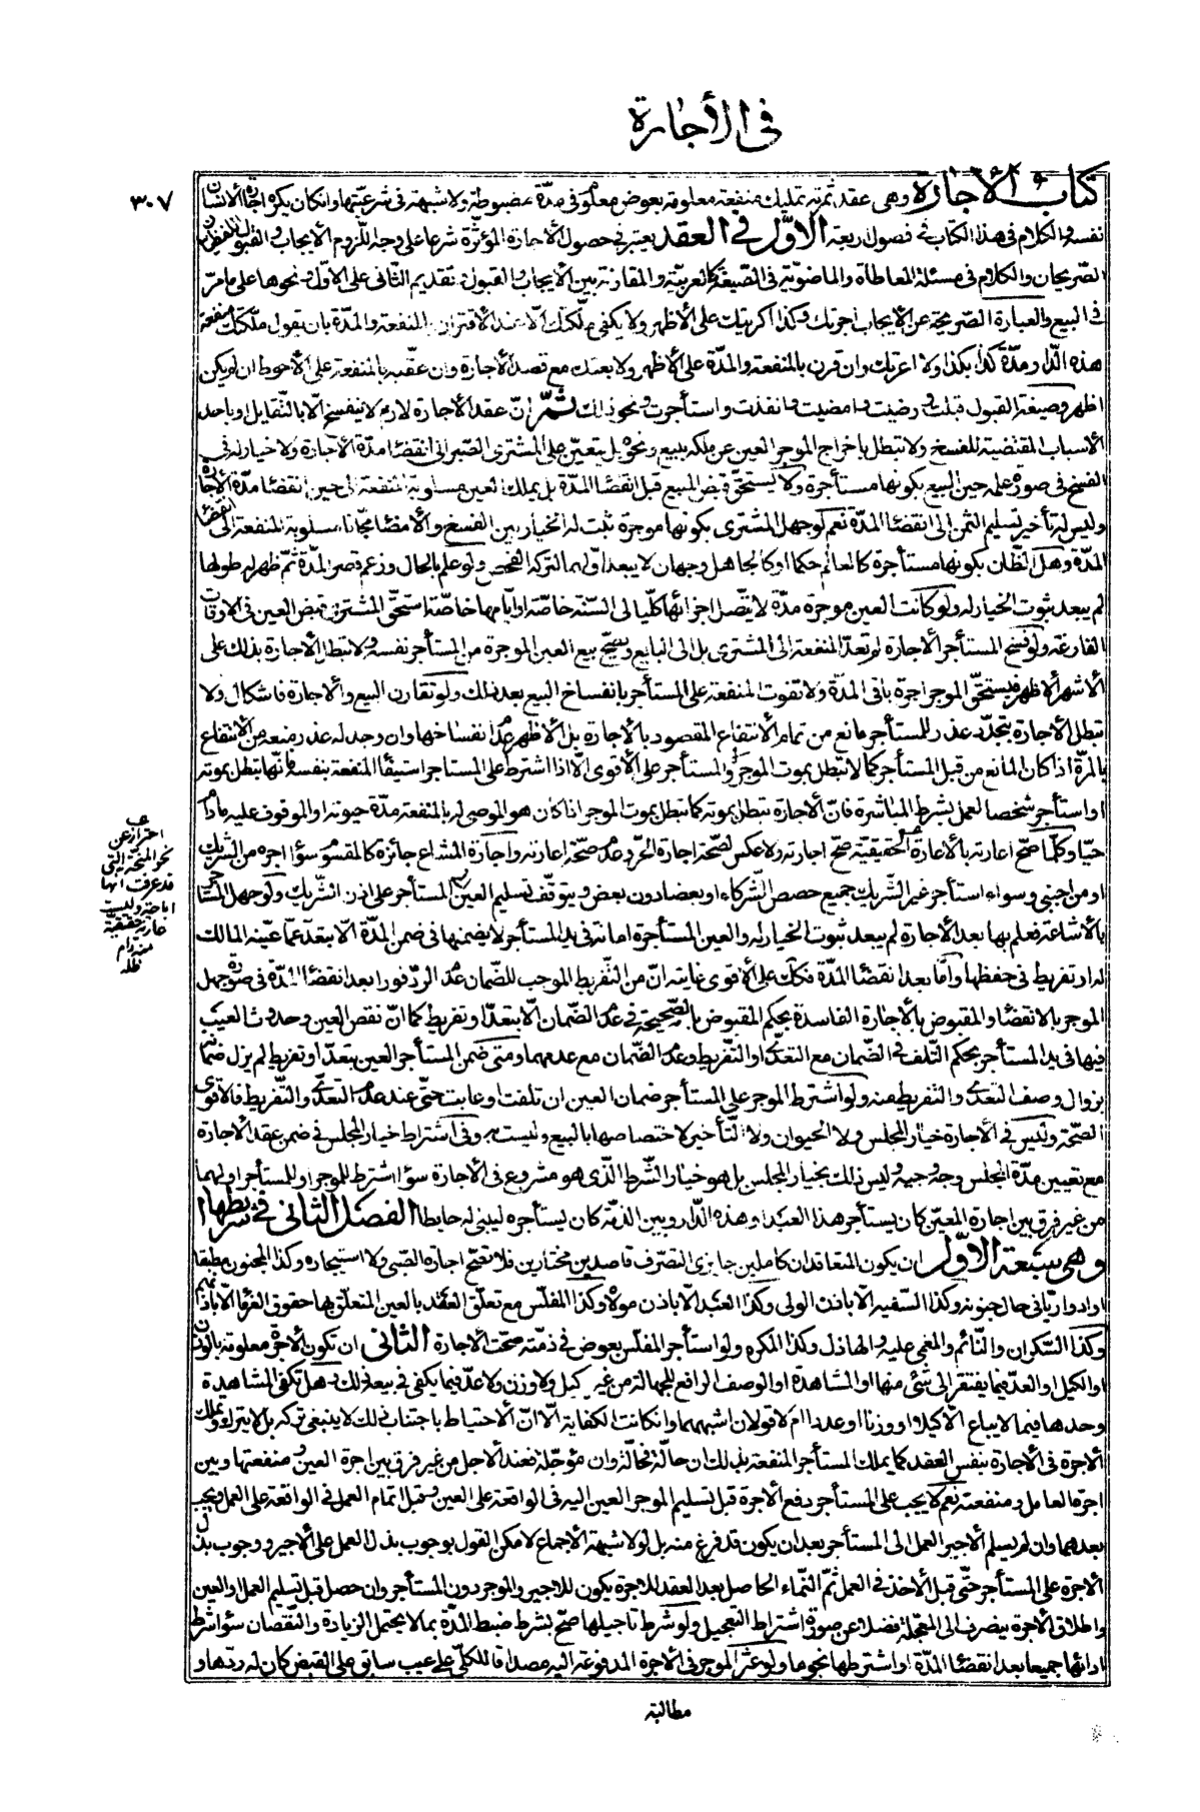 في الأجارة
٣٠٧
كتاب الأجارة وهي عقد ثمرته تمليك منفعة معلومة بعوض معلوم في مدّة مضبوطة ولا شبهة في شرعيّتها وان كان يكره اجارة الأنسان
نفسه والكلام في هذا الكتاب في فصول ربعة الاوّل في العقد يعتبر في حصول الأجارة المؤثّرة شرعا على وجه اللّزوم الأيجاب والقبول اللفظيان
الصّريحان والكلام في مسئلة المعاطاة والماضويّة في الصّيغة كالعربيّة والمقارنة بين الأيجاب والقبول وتقديم الثّاني على الأوّل ونحوها على ما مرّ
في البيع والعبارة الصّريحة عن الأيجاب اجرتك وكذا اكريتك على الأظهر ولا يكفي ملّكتك الّا عند الاقتران بالمنفعة والمدّة بان يقول ملّكتك منفعة
هذه الدّار مدّة كذا بكذا ولا اعرتك وان قرن بالمنفعة والمدّة على الأظهر ولا بعتك مع قصد الأجارة وان عقّبه بالمنفعة على الأحوط ان لم يكن
اظهر وصيغة القبول قبلت ورضيت وامضيت وانفذت واستأجرت ونحو ذلك ثمّ انّ عقد الأجارة لازم لا ينفسخ الّا بالتّقايل او باحد
الأسباب المقتضية للفسخ ولا تبطل باخراج الموجر العين عن ملكه ببيع ونحوه بل يتعيّن على المشتري الصّبر الى انقضاء مدّة الأجارة ولا خيار له في
الفسخ في صورة علمه حين البيع بكونها مستأجرة ولا يستحقّ قبض المبيع قبل انقضاء المدّة بل يملك العين مسلوبة المنفعة الى حين انقضاء مدّة الأجارة
وليس له تأخير تسليم الثّمن الى انقضاء المدّة نعم لو جهل المشتري بكونها موجرة ثبت له الخيار بين الفسخ والأمضاء مجّانا مسلوبة المنفعة الى انقضاء
المدّة وهل الظّان بكونها مستأجرة كالعالم حكما او كالجاهل وجهان لا يبعد اوّلهما لتركه الفحص ولو علم بالحال وزعم قصر المدّة ثمّ ظهر له طولها
لم يبعد ثبوت الخيار له ولو كانت العين موجرة مدّة لا يتّصل اجزائها كليالي السّنة خاصّة او ايّامها خاصّة استحقّ المشتري قبض العين في الأوقات
الفارغة ولو فسخ المستأجر الأجارة لم تعد المنفعة الى المشتري بل الى البايع ويصحّ بيع العين الموجرة من المستأجر نفسه ولا تبطل الأجارة بذلك على
الأشهر الأظهر فيستحقّ الموجر اجرة باقي المدّة ولا تفوت المنفعة على المستأجر بانفساخ البيع بعد ذلك ولو تقارن البيع والأجارة فاشكال ولا
تبطل الأجارة بتجدّد عذر للمستأجر مانع من تمام الأنتفاع المقصود بالأجارة بل الأظهر عدم انفساخها وان وجد له عذر منعه من الأنتفاع
بالمرّة اذا كان المانع من قبل المستأجر كما لا تبطل بموت الموجر والمستأجر على الأقوى الّا اذا اشترط على المستاجر استيفاء المنفعة بنفسه فانّها تبطل بموته
او استأجر شخصا لعمل بشرط المباشرة فانّ الأجارة تبطل بموته كما تبطل بموت الموجر اذا كان هو الموصى له بالمنفعة مدّة حيوته او الموقوف عليه ما دام
حيّا وكلّما صحّ اعارته بالأعارة الحقيقيّة صحّ اجارته ولا عكس لصحّة اجارة الحرّ وعدم صحّة اعارته واجارة المشاع جائزة كالمقسوم سواء اجره من الشّريك
او من اجنبيّ وسواء استأجر غير الشّريك جميع حصص الشّركاء او بعضا دون بعض ويتوقّف تسليم العين المستأجر على اذن الشّريك ولو جهل المستأجر
بالأشاعة فعلم بها بعد الأجارة لم يبعد ثبوت الخيار له والعين المستأجرة امانة في يد المستأجر لا يضمنها في ضمن المدّة الّا بتعدّ عمّا عيّنه المالك
له او تفريط في حفظها وامّا بعد انقضاء المدّة فكك على الأقوى غايته انّ من التّفريط الموجب للضّمان عدم الردّ فورا بعد انقضاء المدّة في صورة جهل
الموجر بالانقضاء والمقبوض بالأجارة الفاسدة بحكم المقبوض بالصّحيحة في عدم الضّمان الّا بتعدّ او تفريط كما انّ نقص العين وحدوث العيب
فيها في يد المستأجر بحكم التّلف في الضّمان مع التعدّي او التّفريط وعدم الضّمان مع عدمهما ومتى ضمن المستأجر العين بتعدّ او تفريط لم يزل ضمانه
بزوال وصف التعدّي والتفريط منه ولو اشترط الموجر على المستأجر ضمان العين ان تلفت او عابت حتّى عند عدم التعدّي والتّفريط فالاقوى
الصّحة وليس في الأجارة خيار المجلس ولا الحيوان ولا التّأخير لاختصاصها بالبيع وليست به وفي اشتراط خيار المجلس في ضمن عقد الأجارة
مع تعيين مدّة المجلس وجه وجيه وليس ذلك بخيار المجلس بل هو خيار الشّرط الّذي هو مشروع في الأجارة سواء اشترط للموجر او للمستأجر او لهما
من غير فرق بين اجارة المعيّن كان يستأجر هذا العبد او هذه الدّار وبين الذمّة كان يستأجره ليبني له حايطا الفصل الثاني في شرائطها
وهي سبعة الاوّل ان يكون المتعاقدان كاملين جايزي التصّرف قاصدين مختارين فلا تصّح اجارة الصّبيّ ولا استيجاره وكذا المجنون مطبقا
او ادواريّا في حال جنونه وكذا السّفيه الّا باذن الولي وكذا العبد الّا باذن مولاه وكذا المفلّس مع تعلّق العقد بالعين المتعلّق بها حقوق الغرماء الّا باذنهم
وكذا السّكران والنّائم والمغمى عليه والهاذل وكذا المكره ولو استأجر المفلّس بعوض في ذمّته صحّت الأجارة الثاني ان تكون الأجرة معلومة بالوزن
او الكيل او العدّ فيما يفتقر الى شئ منها او المشاهدة او الوصف الرافع للجهالة من غير كيل ولا وزن ولا عدّ فيما يكفي في بيعه ذلك وهل تكفي المشاهدة
وحدها فيما لا يباع الّا كيلا او وزنا او عددا ام لا قولان اشبههما وان كانت الكفاية الّا انّ الأحتياط باجتناب ذلك لا ينبغي تركه بل لا يترك ويملك
الأجرة في الأجارة بنفس العقد كما يملك المستأجر المنفعة بذلك ان حالّة فحالّة وان مؤجّلة فعند الأجل من غير فرق بين اجرة العين ومنفعتها وبين
اجرة العامل ومنفعته نعم لا يجب على المستأجر دفع الأجرة قبل تسليم الموجر العين اليه في الواقعة على العين وقبل اتمام العمل في الواقعة على العمل ويجب
بعدهما وان لم يسلم الأجير العمل الى المستأجر بعد ان يكون قد فرغ منه بل لولا شبهة الأجماع لامكن القول بوجوب بذل العمل على الأجير ووجوب بذل
الأجرة على المستأجر حتّى قبل الأخذ في العمل ثمّ النّماء الحاصل بعد العقد للأجرة يكون للأجير والموجر دون المستأجر وان حصل قبل تسليم العمل او العين
واطلاق الأجرة ينصرف الى المعجّلة فضلا عن صورة اشتراط التعجيل ولو شرط تاجيلها صحّ بشرط ضبط المدّة بما لا يحتمل الزيادة والنّقصان سواء شرط
ادائها جميعا بعد انقضاء المدّة او اشترطها نجوما ولو عثر الموجر في الأجرة المدفوعة اليه مصداقا للكلّي على عيب سابق على القبض كان له ردّها و
مطالبة
احتراز عن
نحو المنحة التي
قد عرفت انها
اباحة وليست
عارية حقيقيّة
منه دام
ظلّه